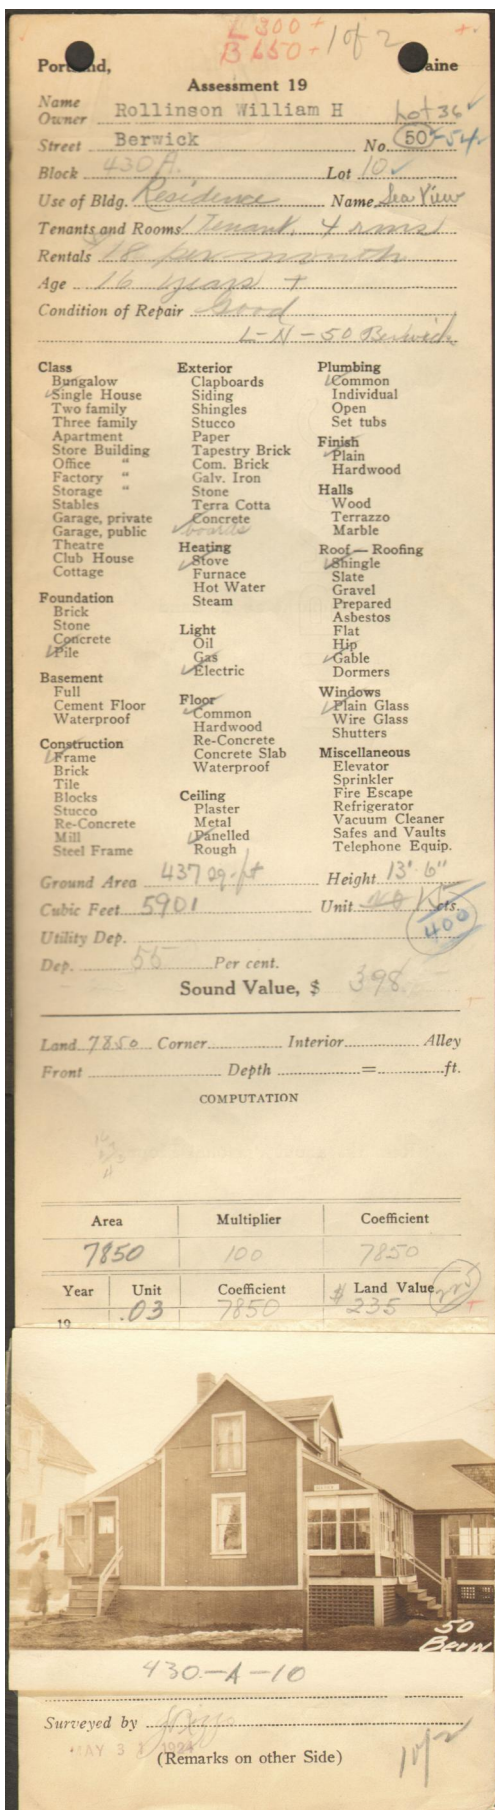 L 300 +
B 650 + 1 of 2 +
Portland, Maine
Assessment 19
Name
Owner Rollinson William H Lot 36
Street Berwick No. 50-54
Block 430 A. Lot 10
Use of Bldg. Residence Name Sea View
Tenants and Rooms 1 Tenant, 4 rms
Rentals 18 per month
Age 16 years +
Condition of Repair Good
L-N-50 Berwick
Class
Bungalow
Single House
Two family
Three family
Apartment
Store Building
Office "
Factory "
Storage "
Stables
Garage, private
Garage, public
Theatre
Club House
Cottage
Foundation
Brick
Stone
Concrete
Pile
Basement
Full
Cement Floor
Waterproof
Construction
Frame
Brick
Tile
Blocks
Stucco
Re-Concrete
Mill
Steel Frame
Exterior
Clapboards
Siding
Shingles
Stucco
Paper
Tapestry Brick
Com. Brick
Galv. Iron
Stone
Terra Cotta
Concrete
boards
Heating
Stove
Furnace
Hot Water
Steam
Light
Oil
Gas
Electric
Floor
Common
Hardwood
Re-Concrete
Concrete Slab
Waterproof
Ceiling
Plaster
Metal
Panelled
Rough
Plumbing
Common
Individual
Open
Set tubs
Finish
Plain
Hardwood
Halls
Wood
Terrazzo
Marble
Roof — Roofing
Shingle
Slate
Gravel
Prepared
Asbestos
Flat
Hip
Gable
Dormers
Windows
Plain Glass
Wire Glass
Shutters
Miscellaneous
Elevator
Sprinkler
Fire Escape
Refrigerator
Vacuum Cleaner
Safes and Vaults
Telephone Equip.
Ground Area 437 sq. ft Height 13' 6"
Cubic Feet 5901 Unit 15 cts.
400
Utility Dep.
Dep. 55 Per cent.
Sound Value, $ 398
Land 7850 Corner Interior Alley
Front Depth = ft.
COMPUTATION
Area Multiplier Coefficient
7850 100 7850
Year Unit Coefficient $ Land Value 225
19 .03 7850 235
50
Berw
430-A-10
Surveyed by
MAY 3 1924
(Remarks on other Side)
1 of 2